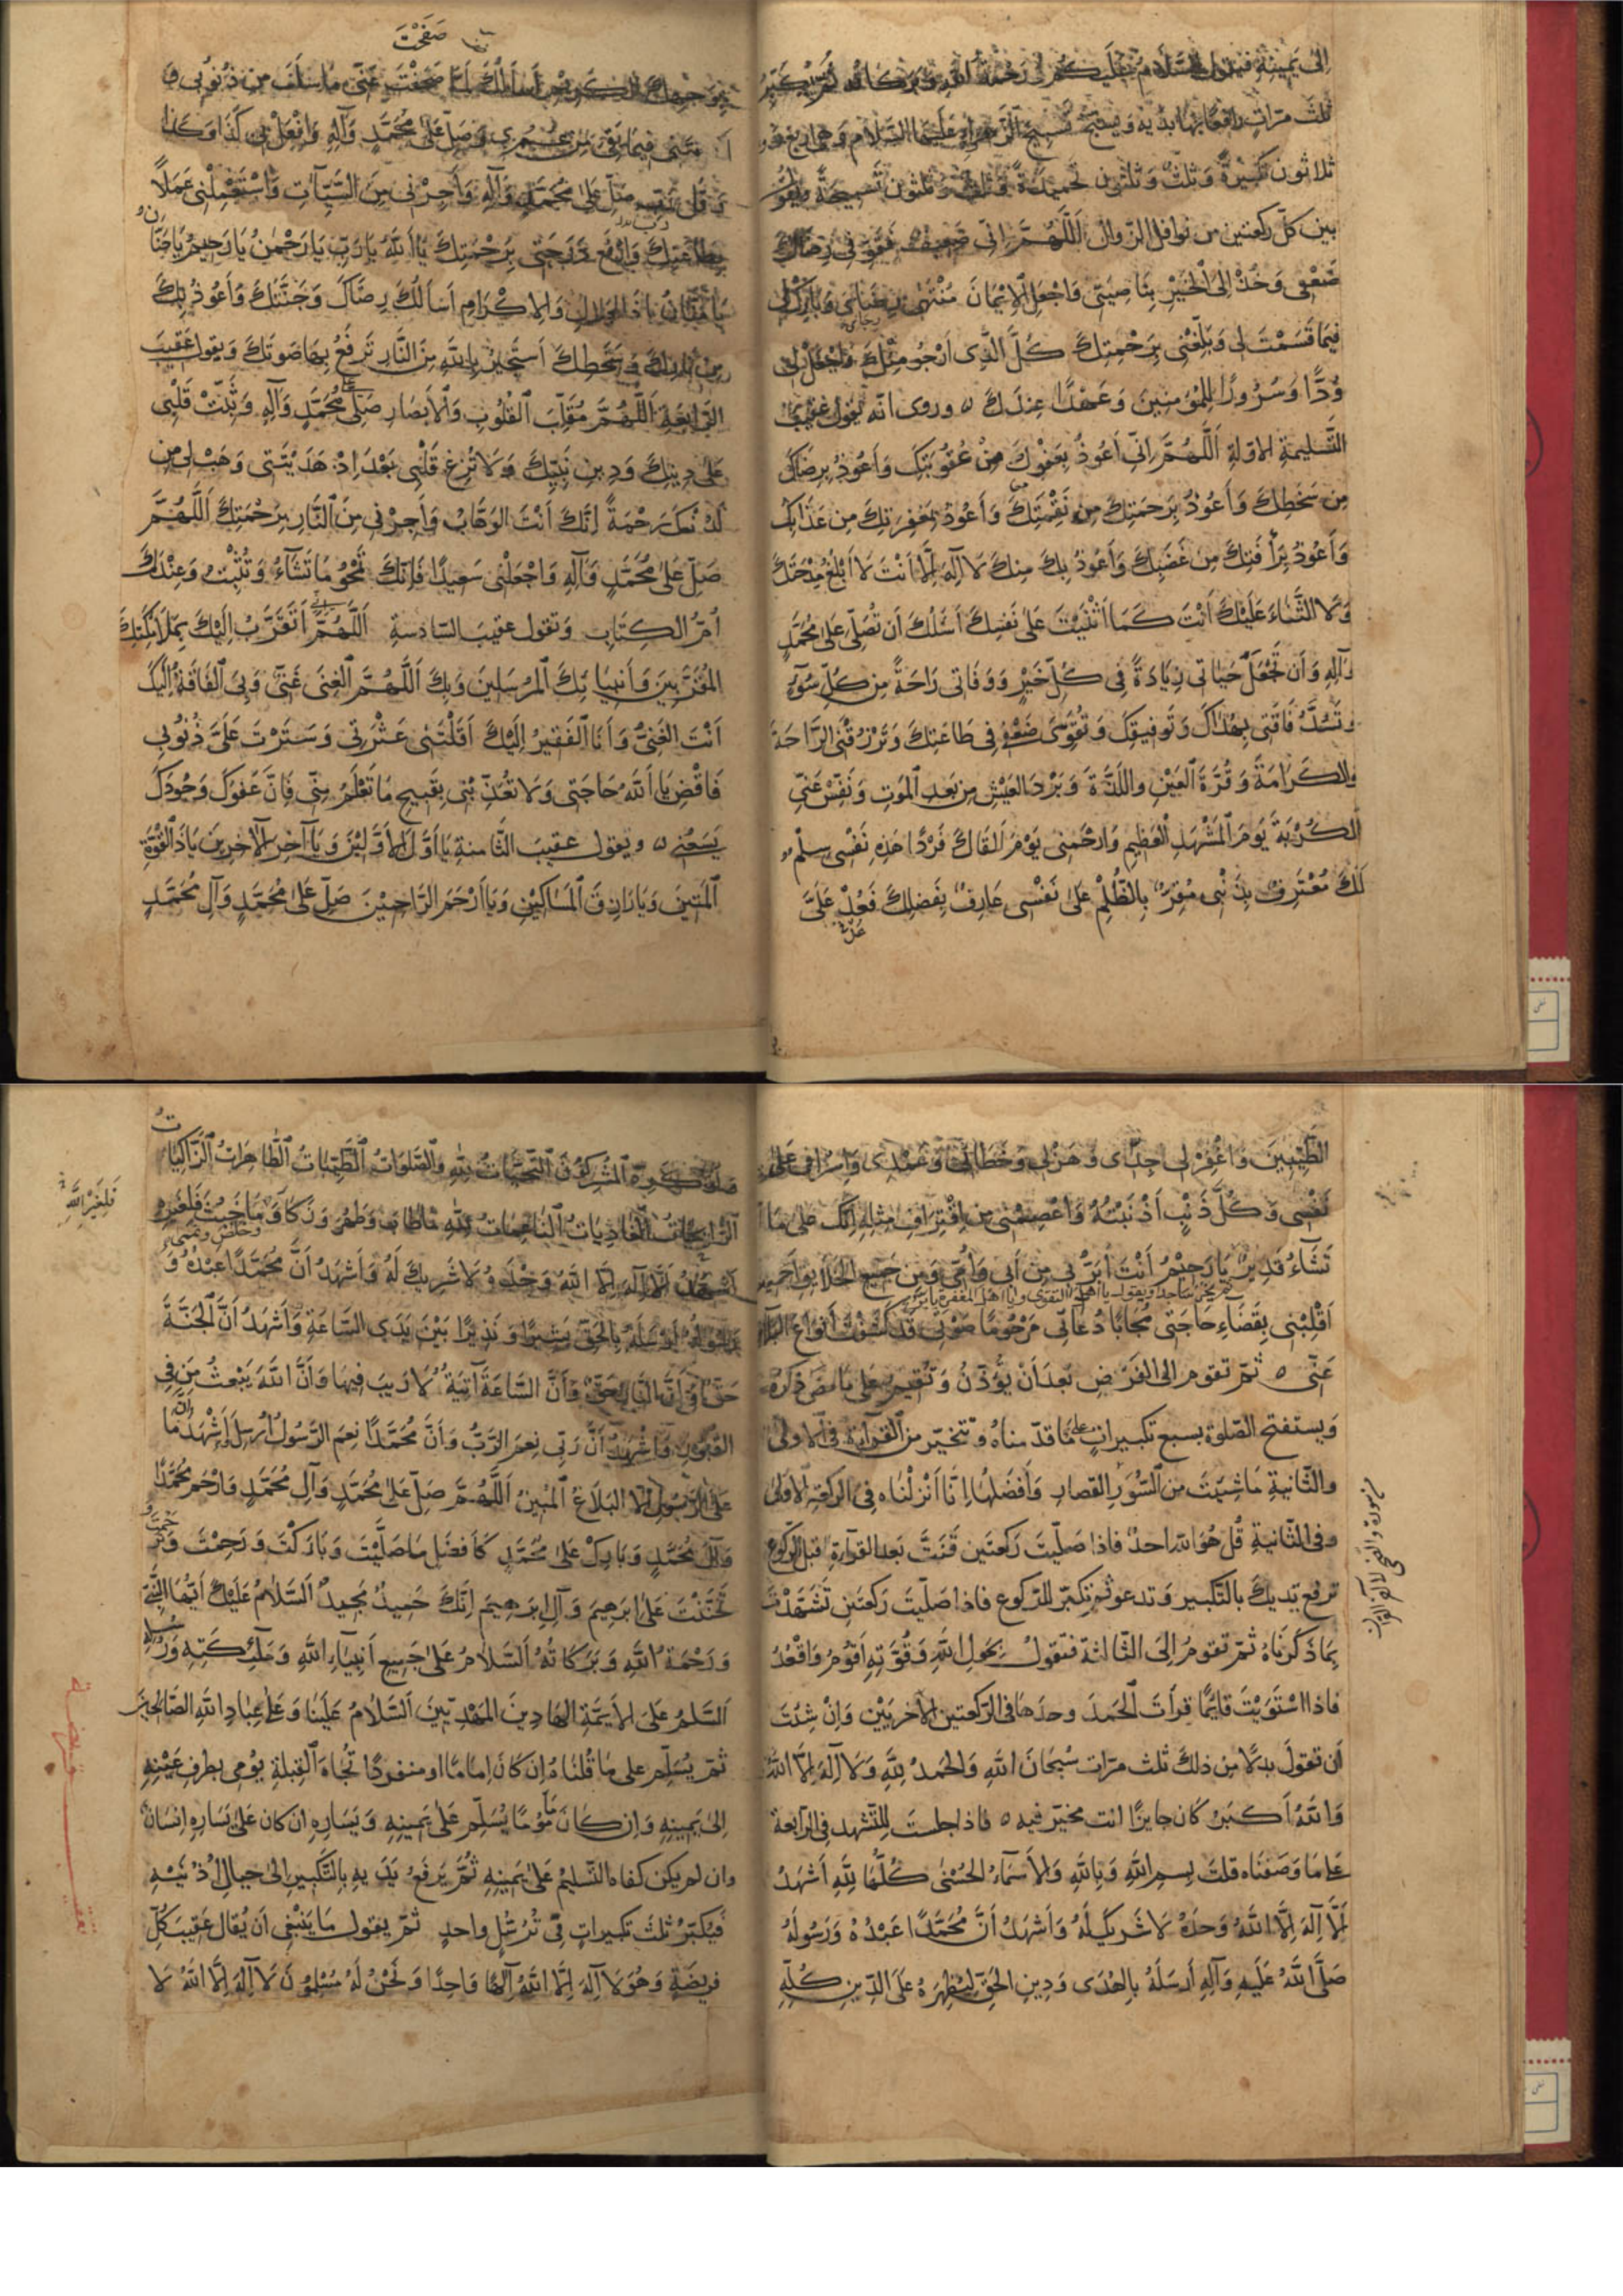 إلى يمينه فيقول السلام عليكم ورحمة الله وبركاته ثم يكبّر
ثلث مرّات رافعًا بها يديه ويسبّح تسبيح الزهراء عليها السلام وهي اربع و
ثلاثون تكبيرةً وثلثٌ وثلثون تحميدةً وثلثٌ وثلثون تسبيحةً ويقول
بين كلّ ركعتين من نوافل الزوال اَللَّهُمَّ إنّى ضَعِيفٌ فَقَوِّ فى رِضَاكَ
ضَعْفى وَخُذْ إلَى الْخَيْرِ بِنَاصِيَتى وَاجْعَلِ الْإيمَانَ مُنْتَهى رِضَائى وَبَارِكْ لى
فيمَا قَسَمْتَ لى وَبَلِّغْنى بِرَحْمَتِكَ كُلَّ الَّذى أَرْجُو مِنْكَ وَاجْعَلْ لى
وُدًّا وَسُرُورًا لِلْمُؤمِنينَ وَعَهْدًا عِنْدَكَ ٥ وروى انّه يقول عقيب
التّسليمة الاولة اَللَّهُمَّ اِنّى أَعُوذُ بِعَفْوِكَ مِنْ عُقُوبَتِكَ وَأَعُوذُ بِرِضَاكَ
مِن سَخَطِكَ وَأَعُوذُ بِرَحْمَتِكَ مِن نَقِمَتِكَ وَأَعُوذُ بِمَغْفِرَتِكَ مِن عَذَابِكَ
وَأَعُوذُ بِرَأْفَتِكَ مِن غَضَبِكَ وَأَعُوذُ بِكَ مِنكَ لَا اِلَهَ اِلَّا أَنْتَ لَا أَبْلُغُ مِدْحَتَكَ
وَلَا الثَّنَاءَ عَلَيْكَ أَنْتَ كَمَا أَثْنَيْتَ عَلَى نَفْسِكَ أَسْئَلُكَ أَن تُصَلِّى عَلَى مُحَمَّدٍ
وَآلِهِ وَأَن تَجْعَلَ حَيَاتى زِيَادَةً فِى كُلِّ خَيْرٍ وَوَفَاتى رَاحَةً مِن كُلِّ سُوءٍ
وتَسُدَّ فَاقَتى بِهُدَاكَ وَتَوفيقِكَ وَتُقَوِّىَ ضَعْفى فى طَاعَتِكَ وَتَرْزُقَنى الرَّاحَةَ
وَالكَرَامَةَ وَقُرَّةَ الْعَيْنِ وَاللَّذَّةَ وَبَرْدَ العَيْشِ مِن بَعدِ الْمَوتِ وَنَفِّسْ عَنِّى
الْكُرْبَةَ يَومَ الْمَشْهَدِ الْعَظِيمِ وَارْحَمْنى يَوْمَ أَلْقَاكَ فَرْدًا هَذِهِ نَفْسى سِلْمٌ
لَكَ مُعْتَرِفٌ بِذَنْبى مُقِرٌّ بِالظُّلْمِ عَلَى نَفْسى عَارِفٌ بِفَضْلِكَ فَعُدْ عَلَىَّ
صَفَحْتَ
الكريم أسألك لمّا صفحت عَنّى مَا سَلَفَ مِن ذُنُوبى وَ
فيما بقى من عمرى وَصَلِّ عَلَى مُحَمَّدٍ وَآلِهِ وَافْعَلْ بى كَذَا وَكَذَا
صَلِّ عَلَى مُحَمَّدٍ وَآلِهِ وَأَجِرْنى مِنَ السَّيِّآتِ وَاسْتَعْمِلْنى عَمَلًا
بِطَاعَتِكَ وَارْفَعْ دَرَجَتى بِرَحْمَتِكَ يَا أَللهُ يَارَبِّ يَارَحْمٰنُ يَارَحِيمُ يَاحَنَّانُ
يَامَنَّانُ يَاذَا الجَلَالِ وَالاِكْرَامِ أَسَالُكَ رِضَاكَ وَجَنَّتَكَ وَأَعُوذُ بِكَ
مِن نَارِكَ وَسَخَطِكَ أَسْتَجيرُ بِاللهِ مِنَ النَّارِ تَرفَعُ بِهَا صَوتَكَ وَيقول عَقيبَ
الرَّابعَةِ اَللَّهُمَّ مُقَلِّبَ القُلُوبِ وَالْأَبْصَارِ صَلِّ عَلَى مُحَمَّدٍ وَآلِهِ وَثَبِّتْ قَلْبِى
عَلَى دِينِكَ وَدِينِ نَبِيِّكَ وَلَا تُزِغْ قَلْبى بَعْدَ اِذْ هَدَيْتَنى وَهَبْ لى مِن
لَدُنكَ رَحْمَةً اِنَّكَ أَنْتَ الوَهَّابُ وَأَجِرْنى مِنَ النَّارِ بِرَحْمَتِكَ اَللَّهُمَّ
صَلِّ عَلَى مُحَمَّدٍ وَآلِهِ وَاجْعَلْنى سَعِيدًا فَاِنَّكَ تَمْحُو مَا تَشَآءُ وَتُثْبِتُ وَعِنْدَكَ
أُمُّ الكِتَابِ وَتقول عقيبَ السّادسةِ اَللَّهُمَّ إنى أَتَقَرَّبُ اِلَيْكَ بِمَلَائِكَتِكَ
الْمُقَرَّبِينَ وَأَنبِيَائِكَ الْمُرسَلِينَ وَبِكَ اَللَّهُمَّ الْغِنَى عَنّى وَبِىَ الْفَاقَةُ اِلَيْكَ
أَنْتَ الغَنِىُّ وَأَنَا الْفَقِيرُ اِلَيْكَ أَقَلْتَنى عَثْرَتِى وَسَتَرْتَ عَلَىَّ ذُنُوبى
فَاقْضِ يَا أَللهُ حَاجَتى وَلَا تُعَذِّبْنى بِقَبِيحِ مَا تَعْلَمُ مِنّى فَاِنَّ عَفْوَكَ وَجُودَكَ
يَسَعُنى ٥ ويقول عقيبَ الثّامنةِ يَا أَوَّلَ الْأَوَّلِيْنَ وَيَا آخِرَ الْآخِرِينَ يَاذَا القُوَّةِ
الْمَتِينَ وَيَارَازِقَ الْمَسَاكِيْنِ وَيَا أَرْحَمَ الرَّاحِمِيْنَ صَلِّ عَلَى مُحَمَّدٍ وَآلِ مُحَمَّدٍ
الطَّيِّبِينَ وَاغْفِرْ لى جِدّى وَهَزْلى وَخَطَائى وَعَمْدِى وَاِسْرَافى عَلَى
نَفْسى وَكُلَّ ذَنْبٍ أَذْنَبْتُهُ وَاعْصِمْنى مِن اقْتِرَافِ مِثْلِهِ اِنَّكَ عَلَى مَا
تَشَآءُ قَدِيرٌ
ثم يخرّ ساجدا ويقول يا اهل التقوى ويا اهل المغفرة يا برّ
يَا رَحِيْمُ أَنْتَ أَبَرُّ بى مِن أَبى وَأُمّى وَمِن جَمِيعِ الخَلَائِقِ أجمعين
اَقْلِبْنى بِقَضَاءِ حَاجَتى مُجَابًا دُعَائى مَرْحُومًا صَوتى قَد كَشَفْتَ أَنْوَاعَ البَلَاءِ
عَنّى ٥ ثمّ تقوم الى الفَرْضِ بَعدَ أَنْ يُؤَذّنُ وَتُقِيمُ عَلى مَا مَضَى ذِكرُهُ
وَيستفتح الصّلوة بسبع تكبيراتٍ على مَا قدّمناهُ وتتخيّر من القرآءةِ فى الاولى
والثّانيةِ مَا شِئتَ من السُّوَرِ القصارِ وَأَفضَلُها اِنّا أَنْزَلْنَاه فِى الركعة الْأُولى
وفى الثّانيةِ قُل هُوَ الله احدٌ فاذا صَلّيتَ رَكعتَين قَنَتَّ بَعدَ القرآءةِ قبل الركوع
ترفع يديكَ بالتّكبير وَتدعو ثم تكبّر للرّكوع فاذا صَلّيتَ رَكعَتَينِ تَشَهَّدْتَ
بِمَا ذَكَرنَاهُ ثمّ تقومُ اِلَى الثّالثةِ فتقولُ بِحَولِ اللهِ وَقُوَّتِهِ أَقُومُ وَاقْعُدُ
فاذا اسْتَوَيْتَ قَائِمًا قرأتَ الْحَمدَ وحدَهَا فى الرّكعتين الْأَخريَيْنِ وَاِنْ شِئتَ
أن تقولَ بدلًا مِن ذلكَ ثلث مرّات سُبحَانَ اللهِ وَالحَمدُ لِلّهِ وَلَا اِلَهَ اِلّا اللهُ
وَاللهُ أَكبَرُ كان جايزًا انت مخيّر فيه ٥ فاذا جلستَ لِلتّشهد فى الرّابعة
على مَا وَصَفنَاه قلتَ بِسمِ اللهِ وَبِاللهِ وَالأَسمَاءُ الحُسْنى كُلُّهَا لِلّهِ أَشهَدُ
أَلَّا اِلَهَ اِلَّا اللهُ وَحدَهُ لَا شَرِيكَ لَهُ وَأَشهَدُ أَنَّ مُحَمَّدًا عَبْدُهُ وَرَسُولُهُ
صَلَّى اللهُ عَلَيهِ وَآلِهِ أَرسَلَهُ بِالهُدَى وَدِينِ الحَقِّ لِيُظْهِرَهُ عَلَى الدِّينِ كُلِّهِ
وَلَو كَرِهَ الْمُشرِكُونَ اَلتَّحِيَّاتُ لِلّهِ وَالصَّلَوَاتُ الطَّيِّبَاتُ الطَّاهِرَاتُ الزَّاكِيَاتُ
الرَّايِحَاتُ الغَادِيَاتُ النَّاعِمَاتُ لِلّهِ مَا طَابَ وَطَهُرَ وَزَكَا وَمَا خَبُثَ فَلِغَيرِ
فَلِغَيْرِ اللهِ
أَشهَدُ أَلَّا اِلَهَ اِلَّا اللهُ وَحدَهُ لَا شَرِيكَ لَهُ وَأَشهَدُ أَنَّ مُحَمَّدًا عَبْدُهُ وَ
رَسُولُهُ أَرْسَلَهُ بِالْحَقِّ بَشِيرًا وَنَذِيرًا بَيْنَ يَدَىِ السَّاعَةِ وَأَشهَدُ أَنَّ الْجَنَّةَ
حَقٌّ وَأَنَّ النَّارَ حَقٌّ وَأَنَّ السَّاعَةَ آتِيَةٌ لَا رَيبَ فِيهَا وَأَنَّ اللهَ يَبْعَثُ مَن فِى
القُبُورِ وَأَشهَدُ أَنَّ رَبّى نِعمَ الرَّبُّ وَأَنَّ مُحَمَّدًا نِعمَ الرَّسُولُ أُرسِلَ أَشْهَدُ أن مَا
عَلَى الرَّسُولِ اِلَّا البَلَاغُ الْمُبِينُ اَللَّهُمَّ صَلِّ عَلَى مُحَمَّدٍ وَآلِ مُحَمَّدٍ وَارْحَم مُحَمَّدًا
وَآلَ مُحَمَّدٍ وَبَارِكْ عَلَى مُحَمَّدٍ كَأَفضَلِ مَا صَلَّيْتَ وَبَارَكْتَ وَرَحِمْتَ وَتَرَحَّمْتَ وَ
تَحَنَّنْتَ عَلَى ابرَهِيمَ وَآلِ ابرَهِيمَ اِنَّكَ حَمِيدٌ مَجِيدٌ اَلسَّلَامُ عَلَيْكَ أَيُّهَا النَّبِىُّ
وَرَحْمَةُ اللهِ وَبَرَكَاتُهُ اَلسَّلَامُ عَلَى جَمِيعِ أَنبِيَآءِ اللهِ وَمَلٓئِكَتِهِ وَرُسُلِهِ
اَلسَّلَمُ عَلَى الأَيِمَّةِ الهَادِينَ المَهْدِيِّينَ اَلسَّلَامُ عَلَيْنَا وَعَلَى عِبَادِ اللهِ الصَّالِحِينَ
ثمّ يُسَلّم على مَا قُلنَاهُ اِن كَانَ اِمَامًا او منفردًا تُجَاهَ الْقِبلَةِ يؤمى بطرفِ عَيْنِهِ
اِلى يَمينِهِ وَاِن كَانَ مَأمُومًا يُسَلِّم عَلَى يَمِينِهِ وَيَسَارِهِ ان كان عَلَى يَسَارِهِ اِنسَانٌ
وان لم يكن كفاه التّسليمُ عَلَى يَمينِهِ ثُمَّ يَرفَعُ يَدَيهِ بِالتَّكبيرِ الى حيال اُذُنَيْهِ
فيُكبّرُ ثلثَ تكبيراتٍ فى تُرَسُّلٍ واحدٍ ثمّ يقول مَا يَنْبَغى أَن يُقال عَقِيبَ كُلِّ
فريضَةٍ وَهُوَ لَا اِلَهَ اِلَّا اللهُ اِلَهًا وَاحِدًا وَنَحْنُ لَهُ مُسْلِمُونَ لَا اِلَهَ اِلَّا اللهُ لَا